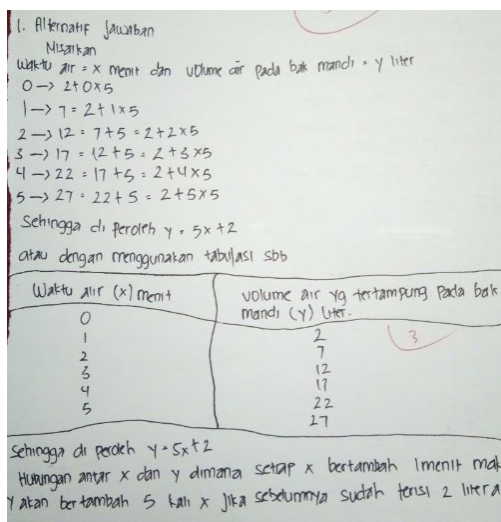 1. Alternatif Jawaban
Misalkan
Waktu air = x menit dan volume air pada bak mandi = y liter
0 → 2+0×5
1 → 7 = 2+1×5
2 → 12 = 7+5 = 2+2×5
3 → 17 = 12+5 = 2+3×5
4 → 22 = 17+5 = 2+4×5
5 → 27 = 22+5 = 2+5×5
Sehingga di peroleh y = 5x+2
atau dengan menggunakan tabulasi sbb
Waktu alir (x) menit
volume air yg tertampung pada bak
mandi (y) liter.
0 2
1 7
2 12
3 17
4 22
5 27
3
Sehingga di peroleh y = 5x+2
Hubungan antar x dan y dimana setiap x bertambah 1 menit mak
y akan bertambah 5 kali x jika sebelumnya sudah terisi 2 liter a